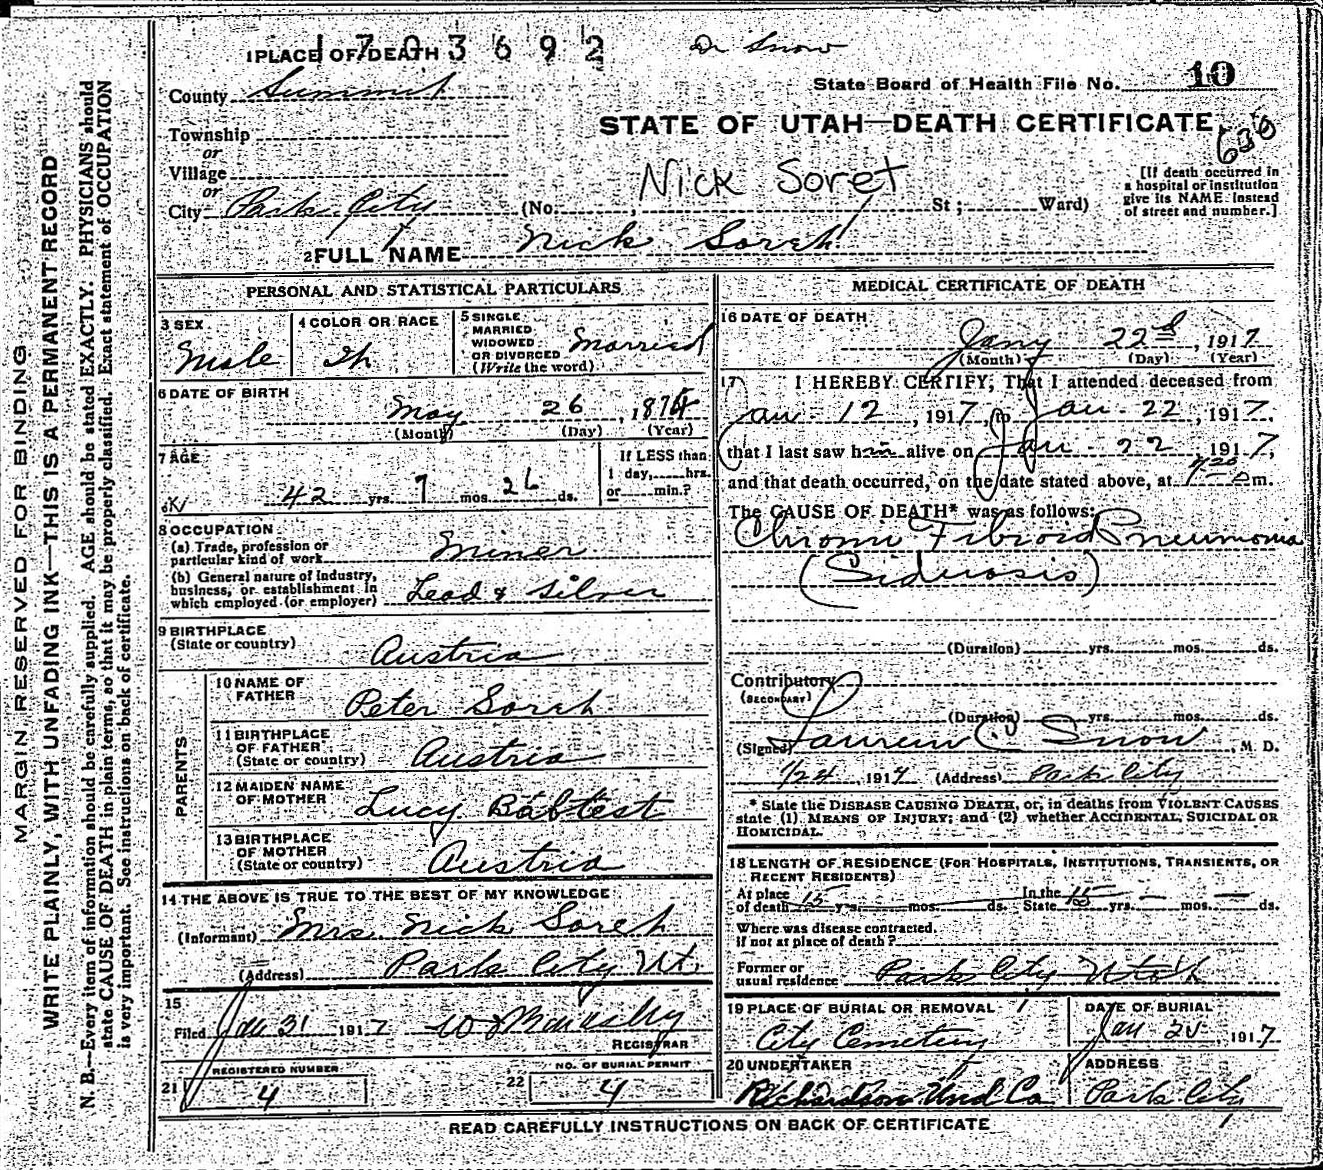 1 PLACE OF DEATH
1703692
Dr Snow
State Board of Health File No. 10
County Summit
STATE OF UTAH—DEATH CERTIFICATE
630
Township
or
Village
or
City Park City (No. , St ; Ward)
Nick Soret
[If death occurred in
a hospital or institution
give its NAME instead
of street and number.]
2 FULL NAME Nick Soret
PERSONAL AND STATISTICAL PARTICULARS
3 SEX
Male
4 COLOR OR RACE
5 SINGLE
MARRIED
WIDOWED
OR DIVORCED
(Write the word)
Married
6 DATE OF BIRTH
May 26, 1874
(Month) (Day) (Year)
7 AGE
42 yrs. 7 mos. 26 ds.
If LESS than
1 day, hrs.
or min.?
8 OCCUPATION
(a) Trade, profession or
particular kind of work Miner
(b) General nature of industry,
business, or establishment in
which employed (or employer) Lead & Silver
9 BIRTHPLACE
(State or country)
Austria
PARENTS
10 NAME OF
FATHER
Peter Soret
11 BIRTHPLACE
OF FATHER
(State or country)
Austria
12 MAIDEN NAME
OF MOTHER
Lucy Babtest
13 BIRTHPLACE
OF MOTHER
(State or country)
Austria
14 THE ABOVE IS TRUE TO THE BEST OF MY KNOWLEDGE
(Informant) Mrs. Nick Soret
(Address) Park City Ut.
15
Filed Jan 31 1917
REGISTRAR
21 REGISTERED NUMBER
4
22 NO. OF BURIAL PERMIT
4
MEDICAL CERTIFICATE OF DEATH
16 DATE OF DEATH
Jany 22d, 1917
(Month) (Day) (Year)
17 I HEREBY CERTIFY, That I attended deceased from
Jan - 12, 1917, to Jan - 22, 1917,
that I last saw him alive on Jan - 22 1917,
and that death occurred, on the date stated above, at m.
The CAUSE OF DEATH* was as follows:
Chronic Fibroid Pneumonia
(Siderosis)
(Duration) yrs. mos. ds.
Contributory
(SECONDARY)
(Duration) yrs. mos. ds.
(Signed) Snow, M. D.
1/24, 1917 (Address) Park City
* State the DISEASE CAUSING DEATH, or, in deaths from VIOLENT CAUSES
state (1) MEANS OF INJURY; and (2) whether ACCIDENTAL, SUICIDAL OR
HOMICIDAL.
18 LENGTH OF RESIDENCE (FOR HOSPITALS, INSTITUTIONS, TRANSIENTS, OR
RECENT RESIDENTS)
At place
of death 15 yrs. mos. ds.
In the
State 15 yrs. — mos. — ds.
Where was disease contracted,
if not at place of death?
Former or
usual residence Park City Utah
19 PLACE OF BURIAL OR REMOVAL
City Cemetery
DATE OF BURIAL
Jan 1917
20 UNDERTAKER
Richardson Und Co
ADDRESS
Park City
READ CAREFULLY INSTRUCTIONS ON BACK OF CERTIFICATE
MARGIN RESERVED FOR BINDING
WRITE PLAINLY, WITH UNFADING INK—THIS IS A PERMANENT RECORD
N. B.—Every item of information should be carefully supplied. AGE should be stated EXACTLY. PHYSICIANS should
state CAUSE OF DEATH in plain terms, so that it may be properly classified. Exact statement of OCCUPATION
is very important. See instructions on back of certificate.